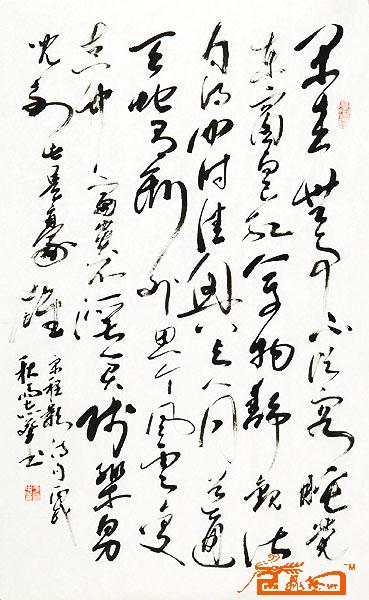 闲来无事不从容睡觉
东窗日已红万物静观皆
自得四时佳兴与人同道通
天地有形外思入风云变
态中富贵不淫贫贱乐男
儿到此是豪雄
宋程颢诗
秋书
TM